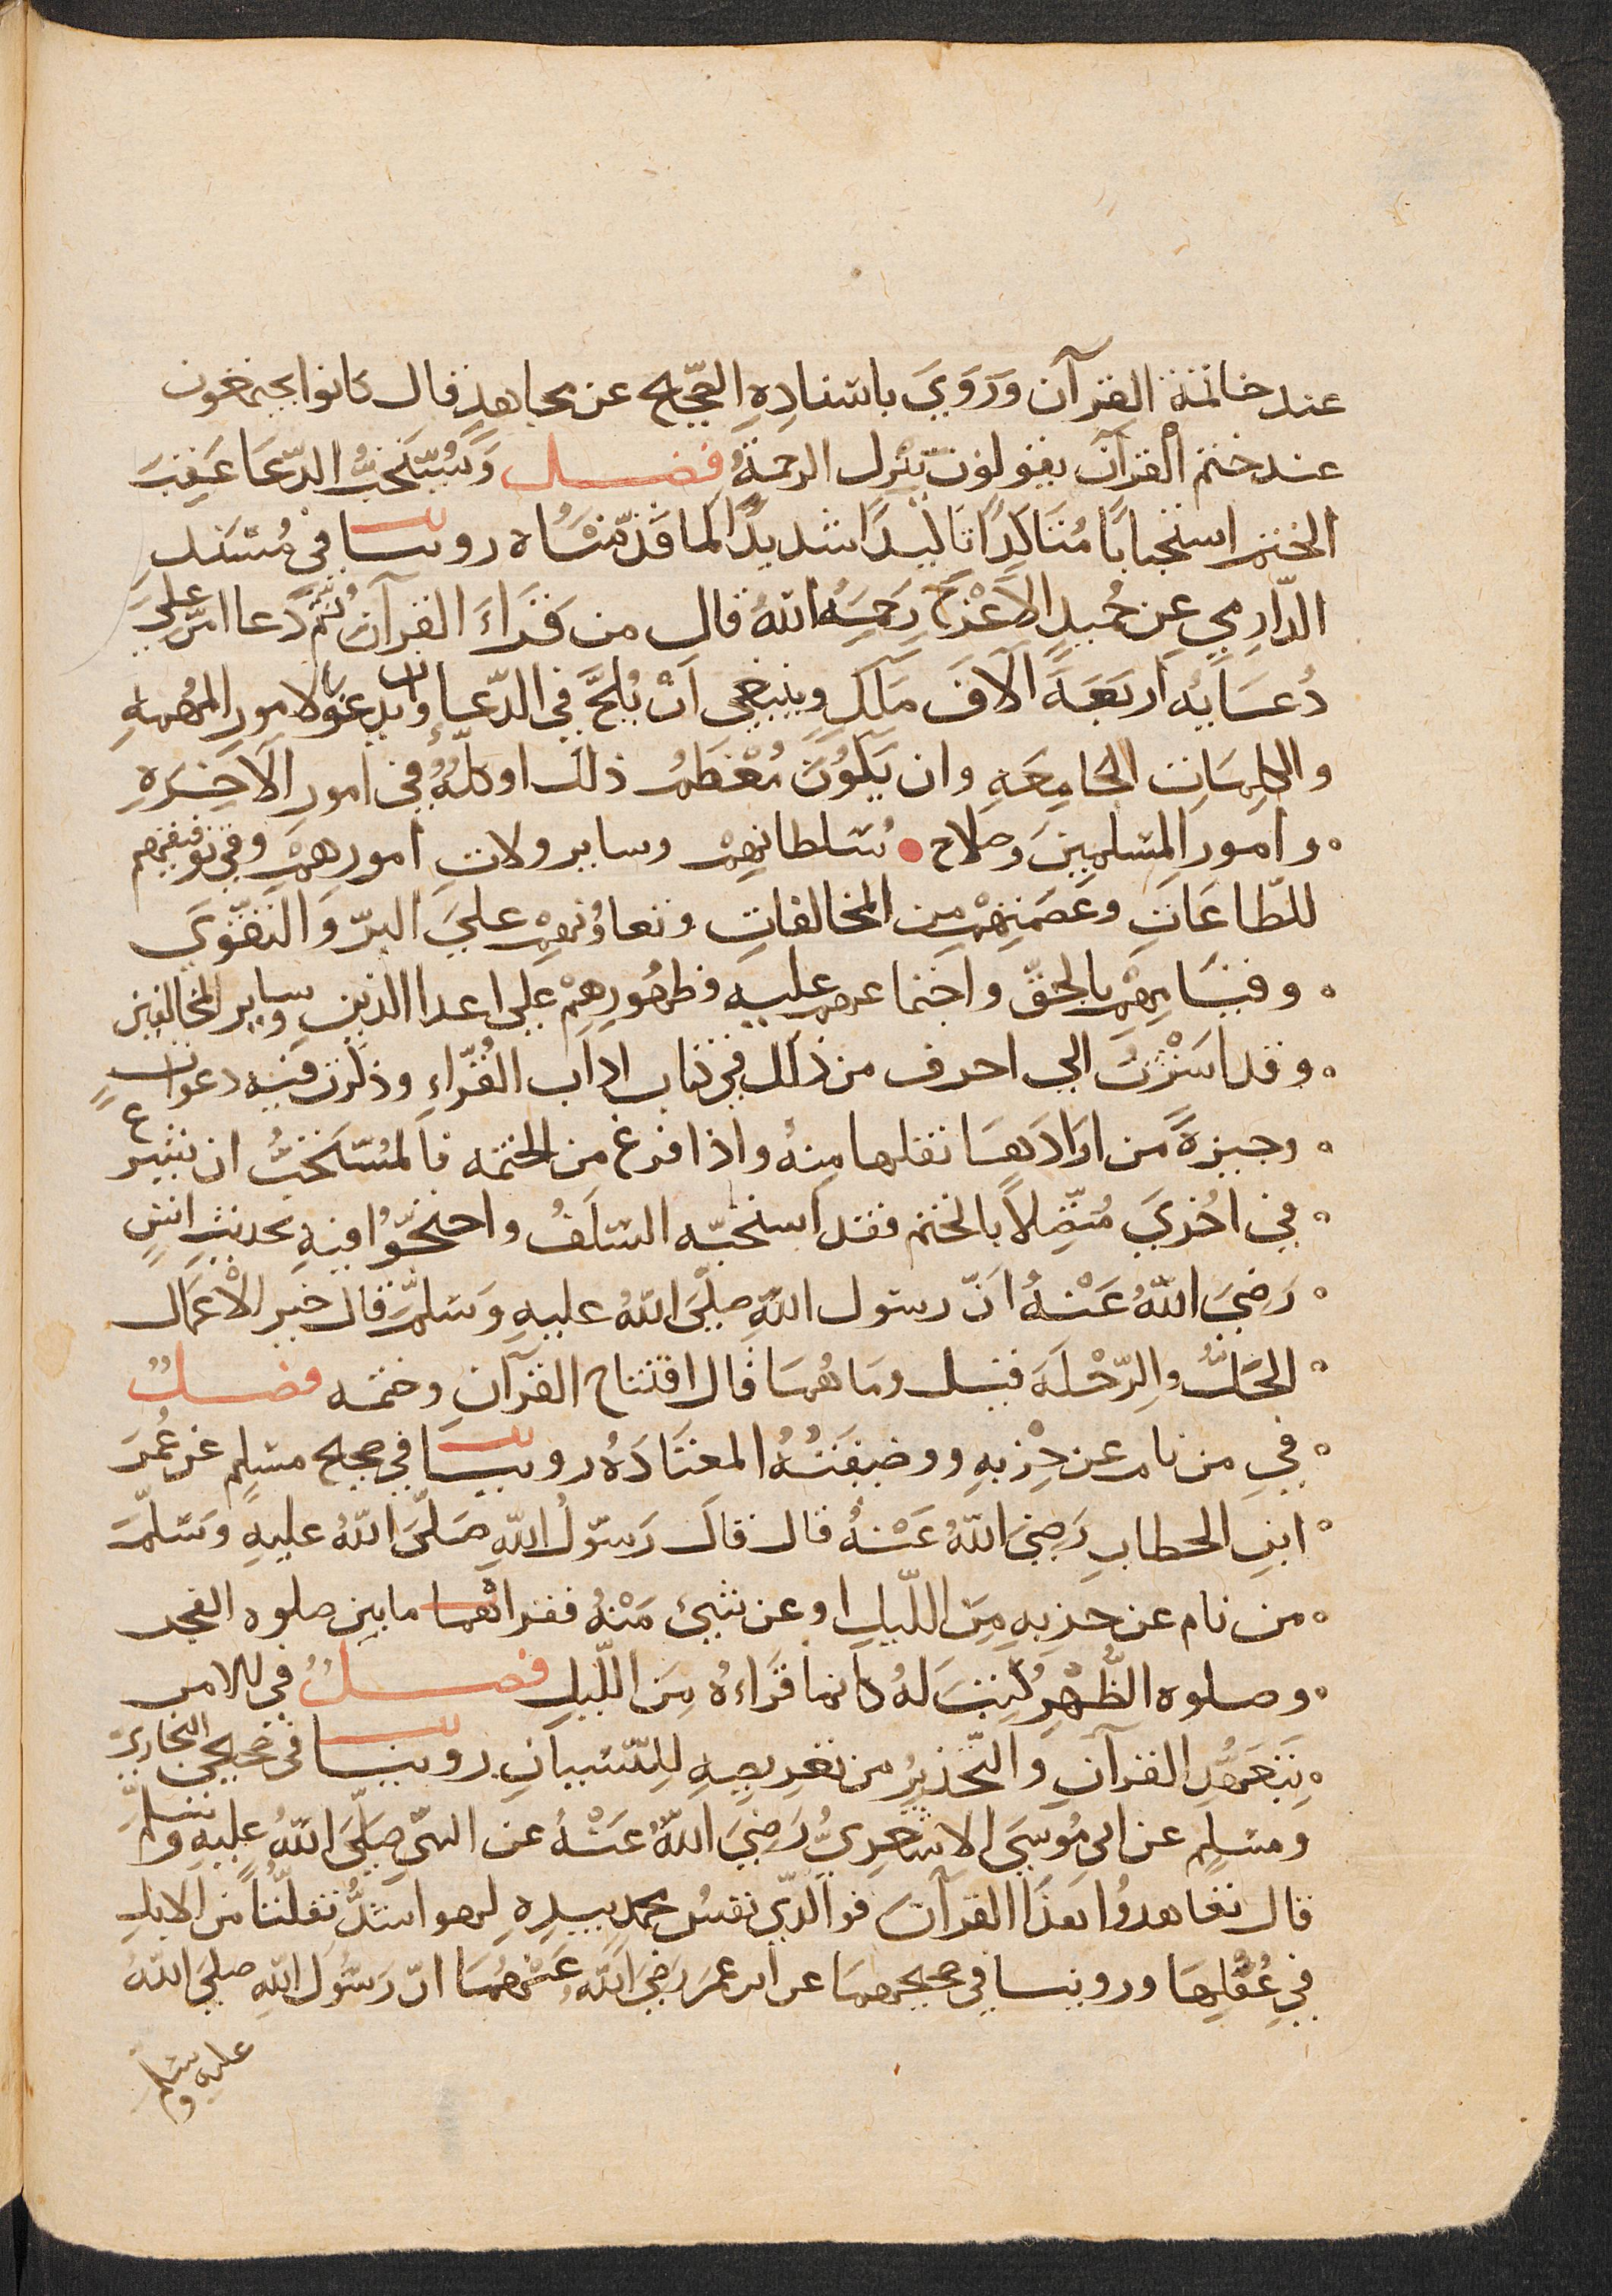 عند خاتمة القرآن وَرَوَيَ باسنادِهِ الصّحيح عن مجاهدٍ قال كانوا يجتمعون
عند ختم القرآن يقولون تنزل الرحمةُ فصل وَيُستَحَبُّ الدّعَا عَقِبَ
الختم استحبابًا مُتَاكِدًا تاكيدًا شديدًا لما قدّمْنَاه روينا في مُسْنَدِ
الدّارمي عن حُميدٍ الأعْرَجِ رَحِمَهُ اللهُ قال من قَرَاءَ القرآن ثُمّ دَعا امّن علَي
دُعَايه اربَعَة آلافَ مَلَكٍ وينبغي اَنْ يُلحَّ في الدّعاءِ وان يدعوا بالامور المهمهِ
والكلِمَاتِ الجامِعَهِ وان يَكُوُنَ مُعْظَمُ ذلك او كلّهُ في امور الآخِرَهِ
وامورِ المسلِمِينَ وصلاح سُلطانِهِمْ وسايرِ ولاتِ امورِهِمْ وفي توفيقهم
للطّاعَاتِ وعَصمَتِهِمْ من المخالفاتِ وتعاوُنِهِمْ علَي البرّ وَالتقْوَي
وقيَامِهِمْ بالحقّ واجتماعهم عليهِ وظهُورِهِمْ علي اعدا الدّين وساير المخالفين
وقد اشَرْتُ الي احرف من ذلك في كتاب اداب القُرّاءِ وذكرت فيه دعواتٍ
وجيزةً من ارَادَهَا نقلها مِنهُ واذا فرغ من الختمه فالمُستَحَبُّ ان يشرع
في اخُرَي مُتّصِلاً بالختم فقد استحبّه السّلَفُ واحتجّوُا فيهِ بحديثِ انسٍ
رَضِيَ اللهُ عَنْهُ اَنّ رسول اللهِ صلّيَ اللهُ عليهِ وَسَلّمَ قال خير الأعْمَال
الحَلُّ والرّحْلَة قيل ومَا هُمَا قال افتتاح القرآنِ وختمه فصلٌ
في من نام عن حِزْبهِ ووضيفَتُهُ المعتَادَهُ روينَا في صحيح مسلِم عن عُمَرَ
ابن الخطابِ رَضِيَ اللهُ عَنْهُ قال قالَ رَسوُلُ اللهِ صَلّيَ اللهُ عليهِ وسَلّمَ
من نام عن حزبهِ مِنَ اللّيلِ او عن شيئ مَنْهُ فقراها ما بين صلوه الفجر
وصلوه الظُّهْرِ كُتِبَ لهُ كانما قَرَاءهُ مِنَ اللّيلِ فصلٌ في الامر
بِتَعَهُّدِ القرآنِ وَالتّحْذيرُ من تعريضِهِ لِلنّسْيَانِ روينا في صَحيحي البخاريّ
ومسلِم عن ابي مُوسَيَ الاشعريُّ رَضِيَ اللهُ عَنْهُ عن النبيّ صَلّيَ اللهُ عليهِ وسَلّمَ
قال تعاهدوُا هذَا القرآنَ فوالّذي نفسُ محمدٍ بيدِهِ لهو اشدُّ تفلّتًا من الابلِ
في عُقُلِهَا وروينا في صحيحهمَا عن ابن عمَرَ رَضِيَ اللهُ عَنْهُمَا انّ رَسُولَ اللهِ صليَ اللهُ
عليه وسلم